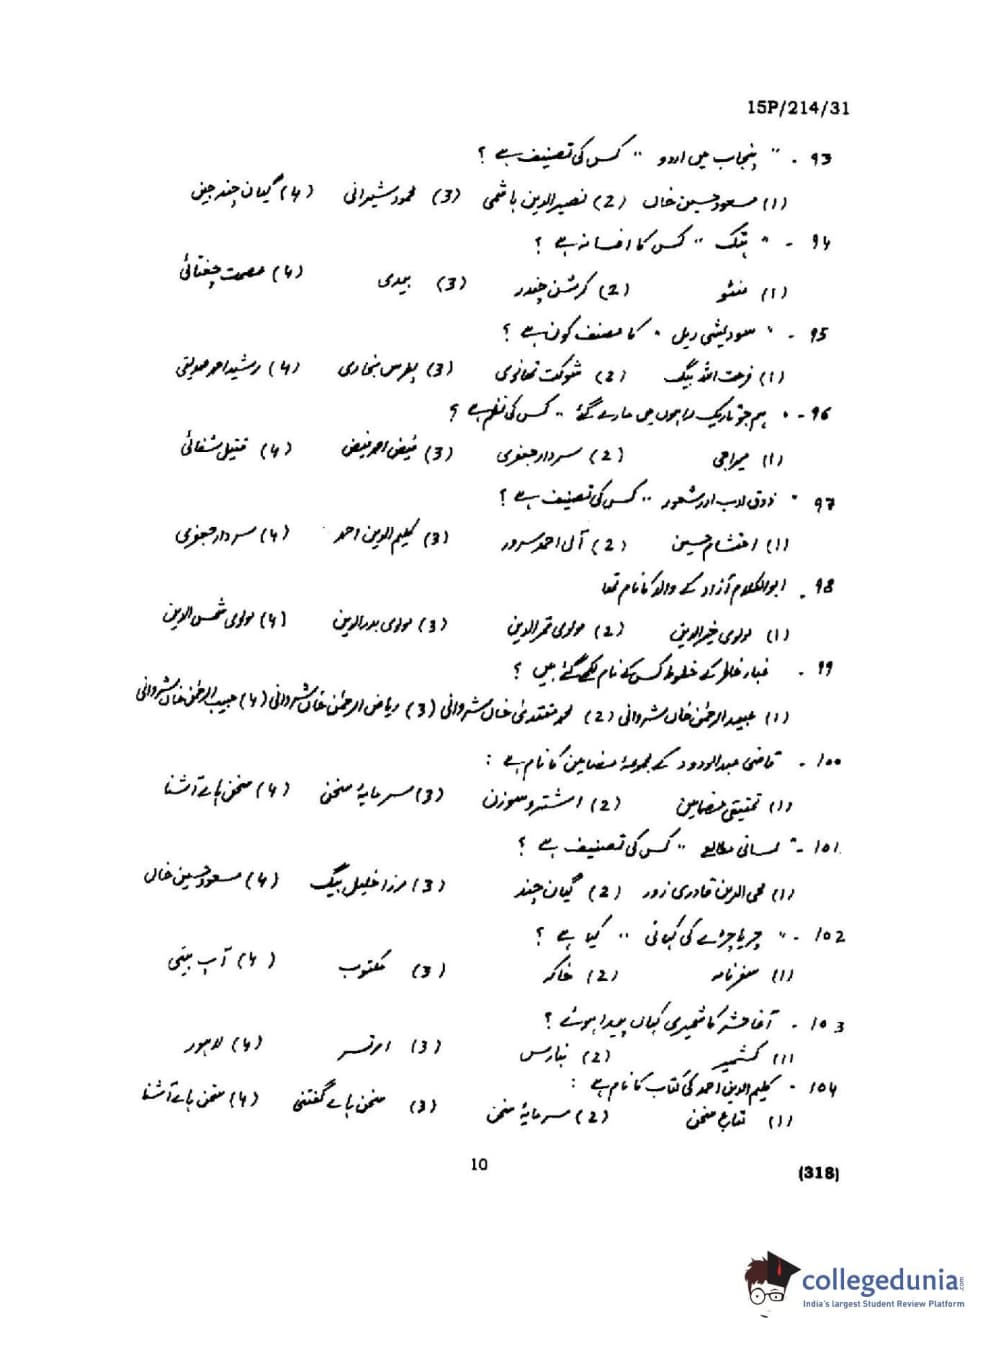 15P/214/31
93 - " پنجاب میں اردو " کس کی تصنیف ہے ؟
(1) مسعود حسین خاں (2) نصیر الدین ہاشمی (3) محمود شیرانی (4) گیان چند جین
94 - " ہتک " کس کا افسانہ ہے ؟
(1) منٹو (2) کرشن چندر (3) بیدی (4) عصمت چغتائی
95 - " سودیشی ریل " کا مصنف کون ہے ؟
(1) فرحت اللہ بیگ (2) شوکت تھانوی (3) پطرس بخاری (4) رشید احمد صدیقی
96 - " ہم جو تاریک راہوں میں مارے گئے " کس کی نظم ہے ؟
(1) میراجی (2) سردار جعفری (3) فیض احمد فیض (4) قتیل شفائی
97 " ذوق ادب اور شعور " کس کی تصنیف ہے ؟
(1) احتشام حسین (2) آل احمد سرور (3) کلیم الدین احمد (4) سردار جعفری
98 . ابوالکلام آزاد کے والد کا نام تھا
(1) مولوی خیر الدین (2) مولوی قمر الدین (3) مولوی بدر الدین (4) مولوی شمس الدین
99 - غبار خاطر کے خطوط کس کے نام لکھے گئے ہیں ؟
(1) عبید الرحمٰن خاں شروانی (2) محمد مقتدیٰ خاں شروانی (3) ریاض الرحمٰن خاں شروانی (4) حبیب الرحمٰن خاں شروانی
100 - قاضی عبدالودود کے مجموعۂ مضامین کا نام ہے :
(1) تحقیقی مضامین (2) اشتر و سوزن (3) سرمایۂ سخن (4) سخن ہائے آشنا
101 - " لسانی مطالعے " کس کی تصنیف ہے ؟
(1) محی الدین قادری زور (2) گیان چند (3) مرزا خلیل بیگ (4) مسعود حسین خاں
102 - " چڑیا چڑے کی کہانی " کیا ہے ؟
(1) سفرنامہ (2) خاکہ (3) مکتوب (4) آپ بیتی
103 - آغا حشر کاشمیری کہاں پیدا ہوئے ؟
(1) کشمیر (2) بنارس (3) امرتسر (4) لاہور
104 - کلیم الدین احمد کی کتاب کا نام ہے :
(1) متاع سخن (2) سرمایۂ سخن (3) سخن ہائے گفتنی (4) سخن ہائے آشنا
10
(318)
collegedunia.com
India's largest Student Review Platform